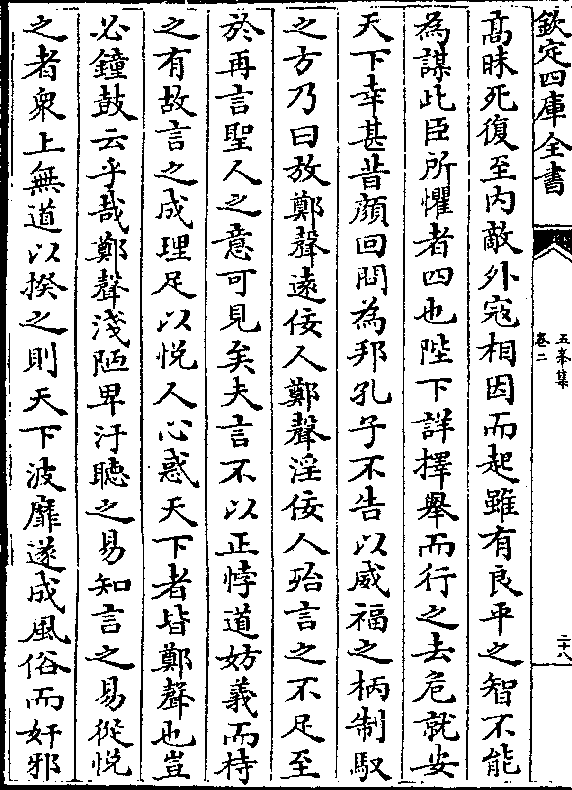 欽定四庫全書
五峯集
卷二
二十八
高昧死復至内敵外宼相因而起雖有良平之智不能
為謀此臣所懼者四也陛下詳擇舉而行之去危就安
天下幸甚昔顔回問為邦孔子不告以威福之柄制馭
之方乃曰放鄭聲逺佞人鄭聲淫佞人殆言之不足至
於再言聖人之意可見矣夫言不以正悖道妨義而持
之有故言之成理足以悦人心惑天下者皆鄭聲也豈
必鐘鼓云乎哉鄭聲淺陋卑汙聽之易知言之易從悦
之者衆上無道以揆之則天下波靡遂成風俗而奸邪